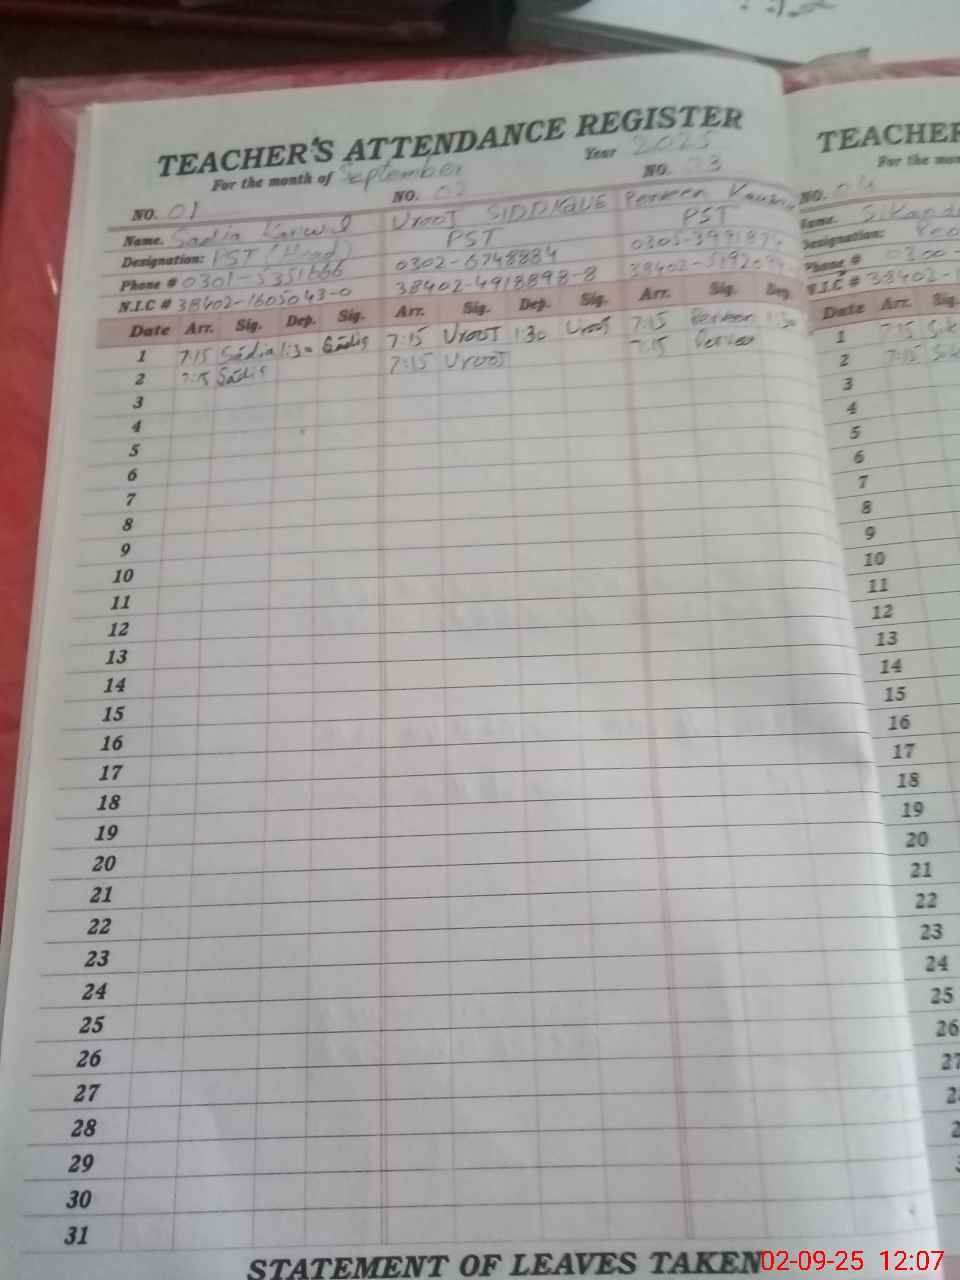 TEACHER'S ATTENDANCE REGISTER
For the month of September Year 2025
NO. 01 NO. 02 NO. 03
Name. Sadia Kanwal UROOJ SIDDIQUE Perveen
Designation: PST (Head) PST PST
Phone # 0301-5351666 0302-6748884
N.I.C # 38402-1605043-0 38402-4918898-8
Date Arr. Sig. Dep. Sig. Arr. Sig. Dep. Sig. Arr. Sig. Dep.
1 7:15 Sadia 1:30 Sadia 7:15 Urooj 1:30 Urooj 7:15 Perveen 1:30
2 7:15 Sadia 7:15 Urooj 7:15 Perveen
3
4
5
6
7
8
9
10
11
12
13
14
15
16
17
18
19
20
21
22
23
24
25
26
27
28
29
30
31
STATEMENT OF LEAVES TAKEN
TEACHER
For the mon
NO. 04
Name.
Designation:
Phone # 0300
N.I.C # 38402-
Date Arr. Sig.
1 7:15 Sik
2 7:15 Sik
3
4
5
6
7
8
9
10
11
12
13
14
15
16
17
18
19
20
21
22
23
24
25
26
27
02-09-25 12:07